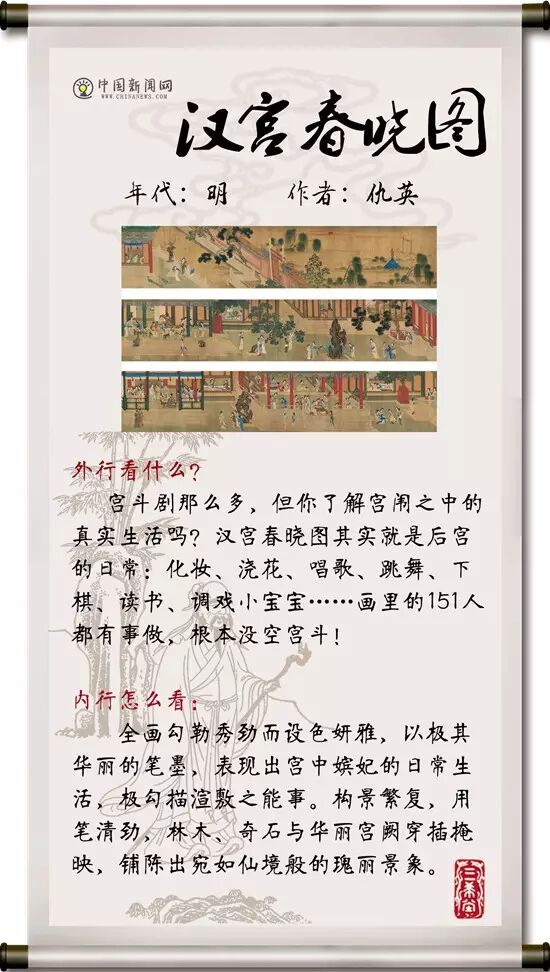 中国新闻网
WWW.CHINANEWS.COM
汉宫春晓图
年代：明 作者：仇英
外行看什么？
宫斗剧那么多，但你了解宫闱之中的
真实生活吗？汉宫春晓图其实就是后宫
的日常：化妆、浇花、唱歌、跳舞、下
棋、读书、调戏小宝宝……画里的151人
都有事做，根本没空宫斗！
内行怎么看：
全画勾勒秀劲而设色妍雅，以极其
华丽的笔墨，表现出宫中嫔妃的日常生
活，极勾描渲敷之能事。构景繁复，用
笔清劲，林木、奇石与华丽宫阙穿插掩
映，铺陈出宛如仙境般的瑰丽景象。
三希堂